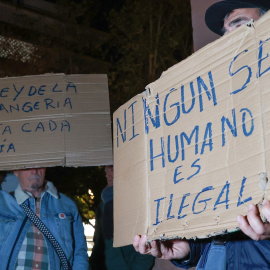 EY DE LA
ANGERIA
A CADA
NINGUN SE
HUMANO
ES
ILEGAL